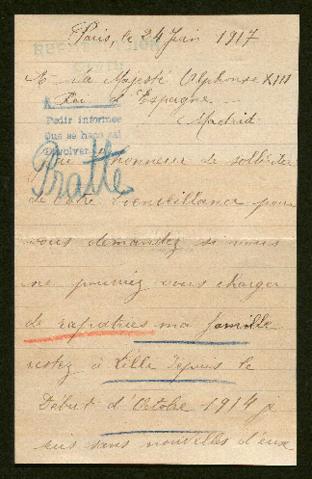 Paris, le 24 Juin 1917
A Sa Majesté Alphonse XIII
Roi d'Espagne
Madrid
Pedir informes
Que se haga así
Devolver
Pratte
l'honneur de solliciter
de votre bienveillance pour
vous demandez si vous
ne pourriez vous charger
de rapatriés ma famille
restez à Lille depuis le
Début d'Octobre 1914 je
suis sans nouvelles d'eux